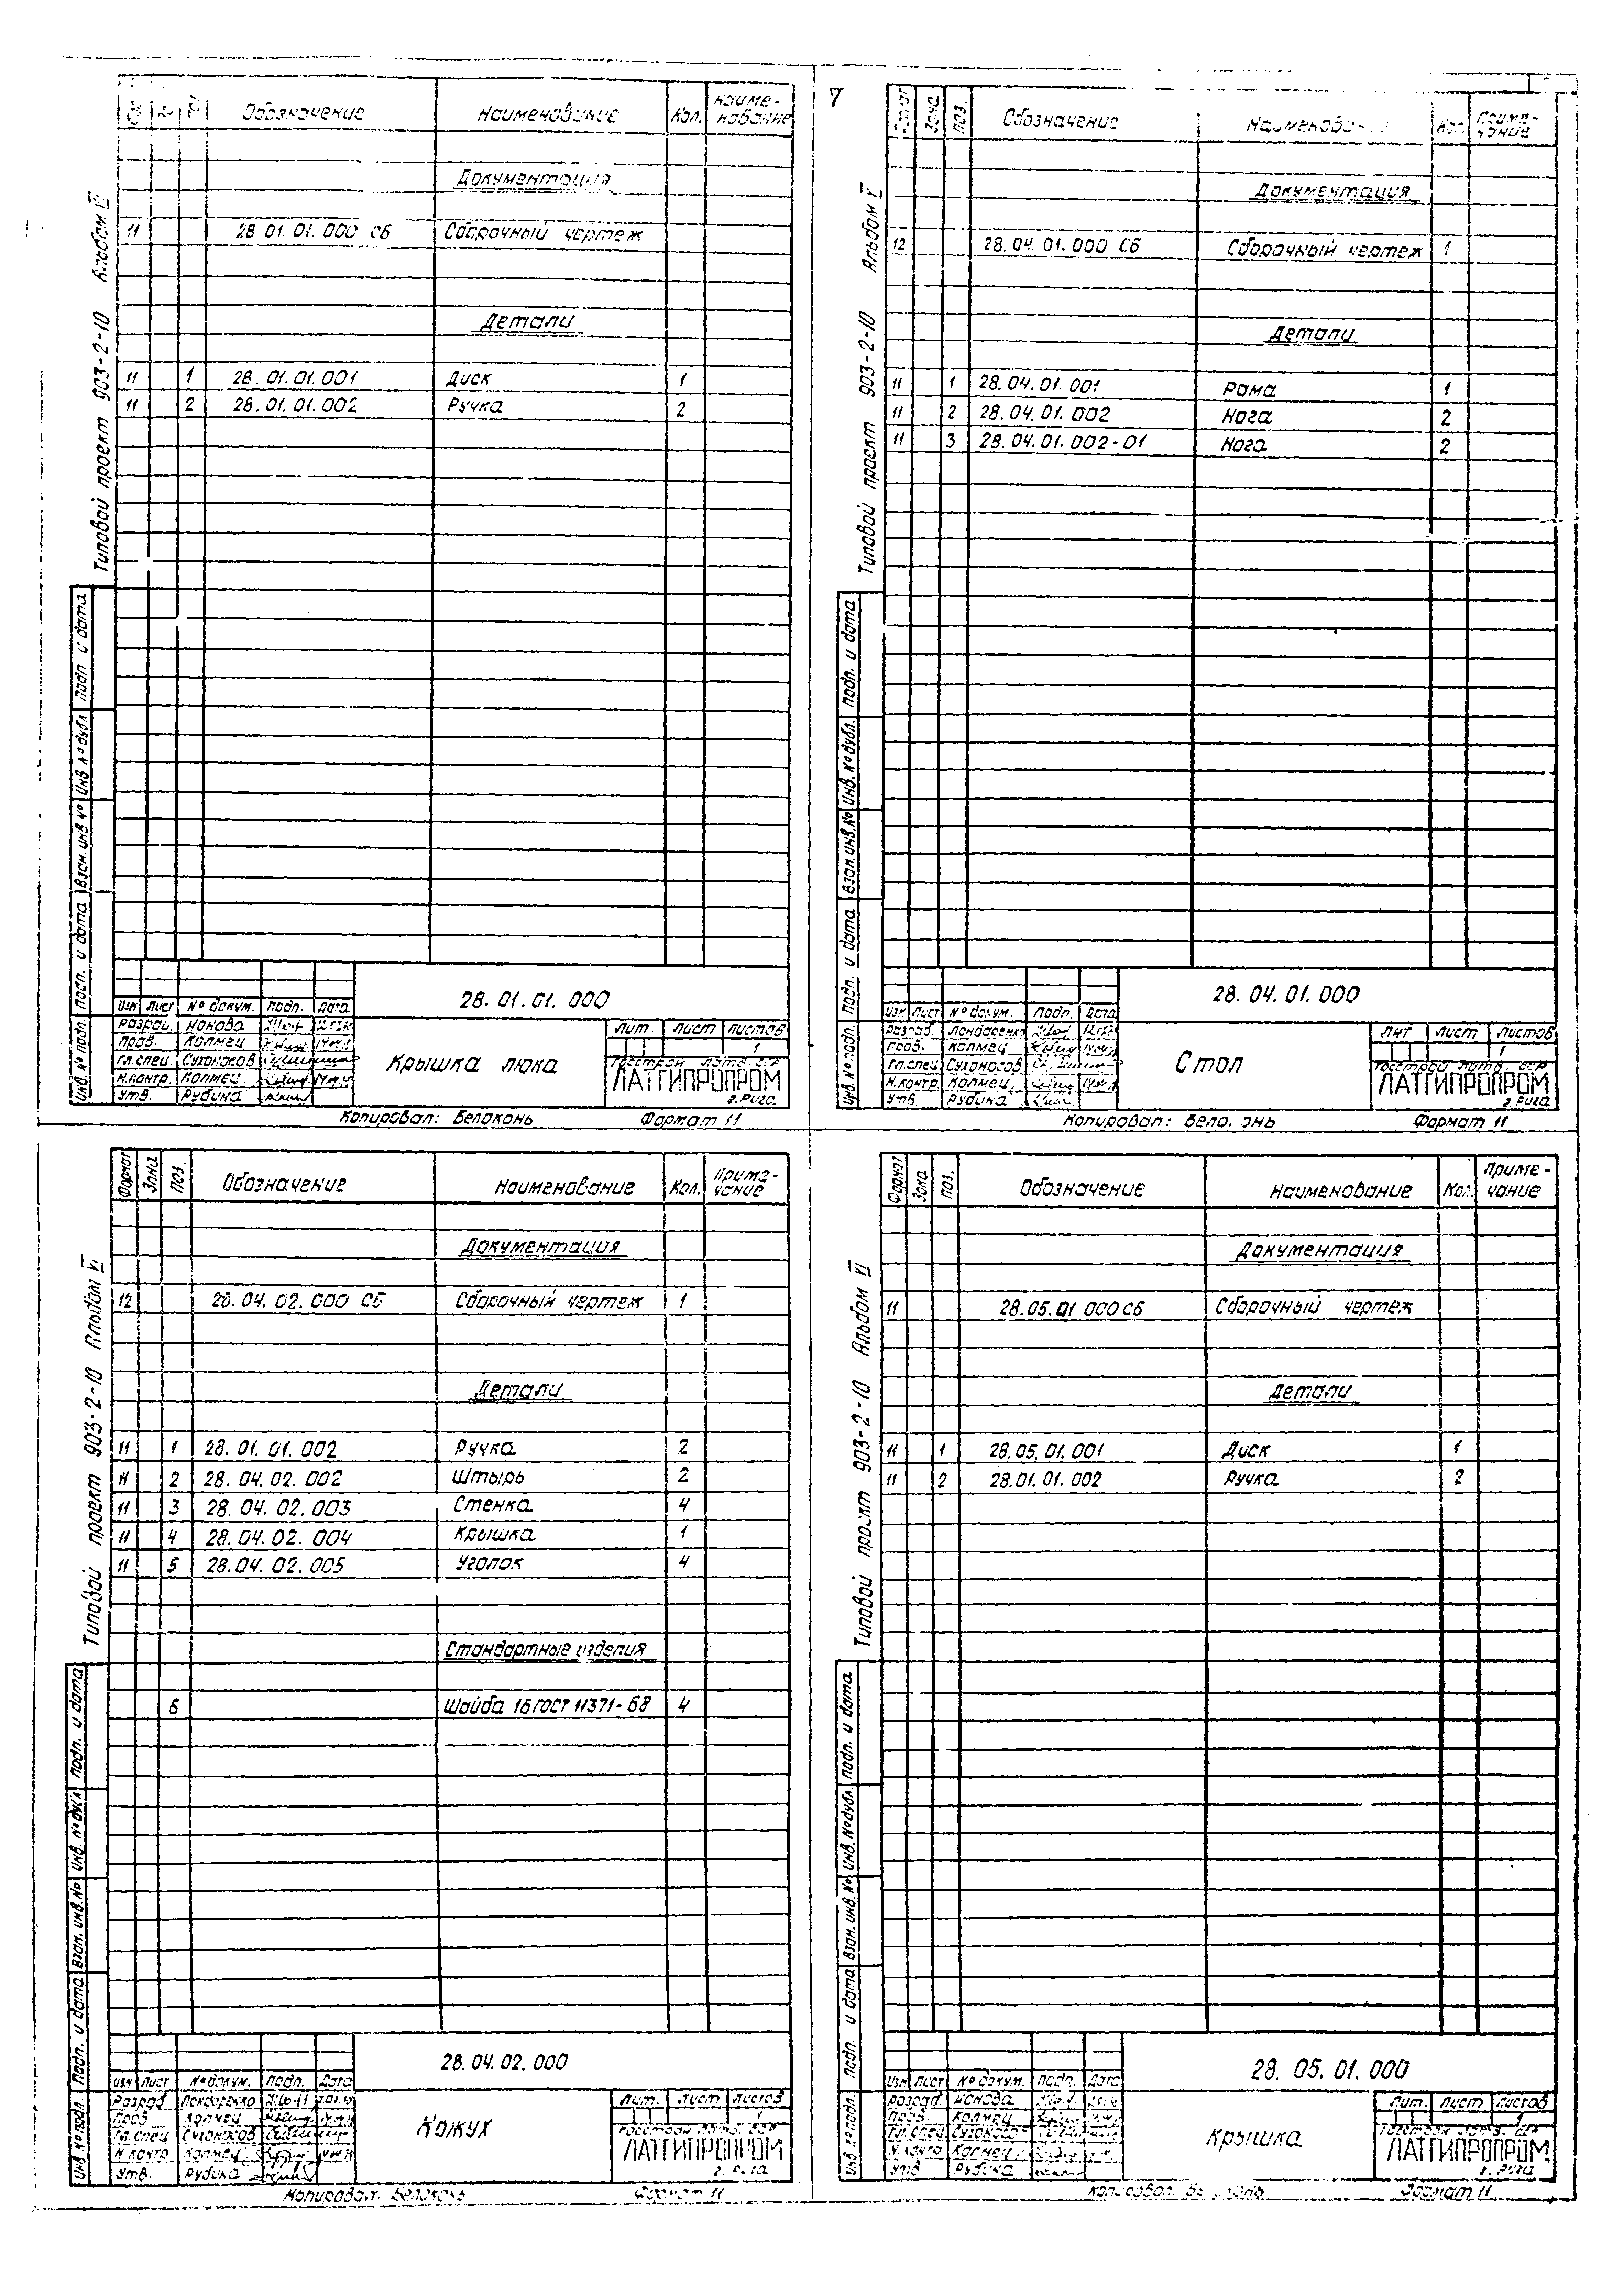 7
Обозначение Наименование Кол. Наиме-нование
Документация
11 28 01. 01. 000 СБ Сборочный чертеж
Детали
11 1 28. 01. 01. 001 Диск 1
11 2 28. 01. 01. 002 Ручка 2
Типовой проект 903-2-10 Альбом VI
Инв. № подл. Подп. и дата Взам. инв № Инв. № дубл Подп. и дата
28. 01. 01. 000
Изм Лист № докум. Подп. Дата
Разраб. Нокова
Пров. Калмец
Гл. спец. Сухоносов
Н.контр. Калмец
Утв. Рубина
Крышка люка
Лит. Лист Листов
1
Госстрой Латв. ССР
ЛАТГИПРОПРОМ
г. Рига
Копировал: Белоконь Формат 11
Формат Зона Поз. Обозначение Наименование Кол. Приме-чание
Документация
12 28. 04. 01. 000 СБ Сборочный чертеж 1
Детали
11 1 28. 04. 01. 001 Рама 1
11 2 28. 04. 01. 002 Нога 2
11 3 28. 04. 01. 002-01 Нога 2
Типовой проект 903-2-10 Альбом
Инв. № подл. Подп. и дата Взам. инв. № Инв. № дубл. Подп. и дата
28. 04. 01. 000
Изм Лист № докум. Подп. Дата
Разраб. Пондаренко
Пров. Калмец
Гл. спец Сухоносов
Н.контр. Калмец
Утв. Рубина
Стол
Лит Лист Листов
1
Госстрой Латв. ССР
ЛАТГИПРОПРОМ
г. Рига
Формат 11
Формат Зона Поз. Обозначение Наименование Кол. Приме-чание
Документация
12 28. 04. 02. 000 СБ Сборочный чертеж 1
Детали
11 1 28. 01. 01. 002 Ручка 2
11 2 28. 04. 02. 002 Штырь 2
11 3 28. 04. 02. 003 Стенка 4
11 4 28. 04. 02. 004 Крышка 1
11 5 28. 04. 02. 005 Уголок 4
Стандартные изделия
6 Шайба 16 ГОСТ 11371-68 4
Типовой проект 903-2-10 Альбом VI
Инв. № подл. Подп. и дата Взам. инв. № Инв. № дубл Подп. и дата
28. 04. 02. 000
Изм Лист № докум. Подп. Дата
Разраб. Пондаренко
Пров Калмец
Гл. спец Сухоносов
Н. контр Калмец
Утв. Рубина
Кожух
Лит. Лист Листов
1
Госстрой Латв. ССР
ЛАТГИПРОПРОМ
г. Рига
Копировал: Белоконь Формат 11
Формат Зона Поз. Обозначение Наименование Кол. Приме-чание
Документация
11 28. 05. 01 000 СБ Сборочный чертеж
Детали
11 1 28. 05. 01. 001 Диск 1
11 2 28. 01. 01. 002 Ручка 2
Типовой проект 903-2-10 Альбом VI
Инв. № подл. Подп. и дата Взам. инв. № Инв. № дубл. Подп. и дата
28. 05. 01. 000
Изм Лист № докум. Подп. Дата
Разраб. Нокова
Пров. Калмец
Гл. спец Сухоносов
Н. контр Калмец
Утв Рубина
Крышка
Лит. Лист Листов
1
Госстрой Латв. ССР
ЛАТГИПРОПРОМ
г. Рига
Формат 11